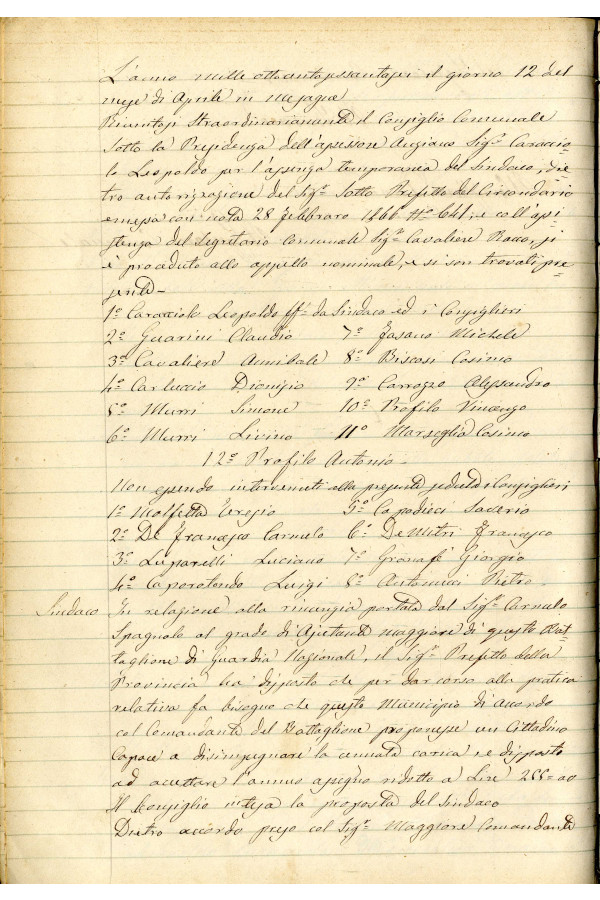 L'anno mille ottocentosessantasei il giorno 12 del
mese di Aprile in Mesagne
Riunitosi straordinariamente il Consiglio Comunale
sotto la Presidenza dell'assessore Anziano Sig.r Caraccio-
lo Leopoldo per l'assenza temporanea del Sindaco, die-
tro autorizzazione del Sig.r Sotto Prefetto del Circondario
emessa con nota 28 febbraro 1866 N.o 641, e coll'assi-
stenza del Segretario Comunale Sig.r Cavaliere Rocco, si
è proceduto allo appello nominale, e si son trovati pre-
senti -
1.o Caracciolo Leopoldo ff.e da Sindaco ed i Consiglieri
2.o Guarini Claudio 7.o Fasano Michele
3.o Cavaliere Annibale 8.o Biscosi Cosimo
4.o Carluccio Dionisio 9.o Carrozzo Alessandro
5.o Murri Simone 10.o Profilo Vincenzo
6.o Murri Livino 11.o Marseglia Cosimo
12.o Profilo Antonio -
Non essendo intervenuti alla presente seduta i Consiglieri
1.o Molfetta Teresio 5.o Capodieci Saverio
2.o De Francesco Carmelo 6.o De Mitri Francesco
3.o Luparelli Luciano 7.o Granafè Giorgio
4.o Caporotondo Luigi 8.o Antonucci Pietro -
Sindaco In relazione alla rinunzia portata dal Sig.r Carmelo
Spagnolo al grado di Ajutante maggiore di questo Bat-
taglione di Guardia Nazionale, il Sig.r Prefetto della
Provincia ha disposto che per dar corso alla pratica
relativa fa bisogno che questo Municipio di accordo
col Comandante del Battaglione proponesse un Cittadino
capace a disimpegnare la cennata carica, e disposto
ad accettare l'annuo assegno ridotto a Lire 255=00
Il Consiglio intesa la proposta del Sindaco
Dietro accordo preso col Sig.r Maggiore Comandante